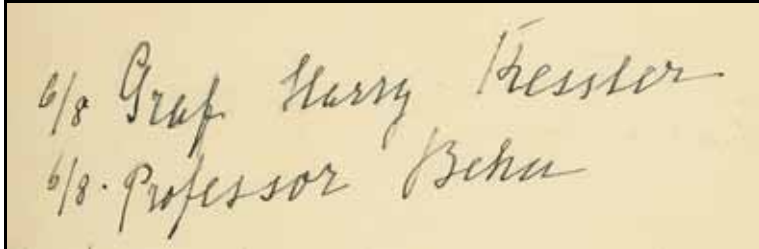 6/8 Graf Harry Kessler
6/8. Professor Behn